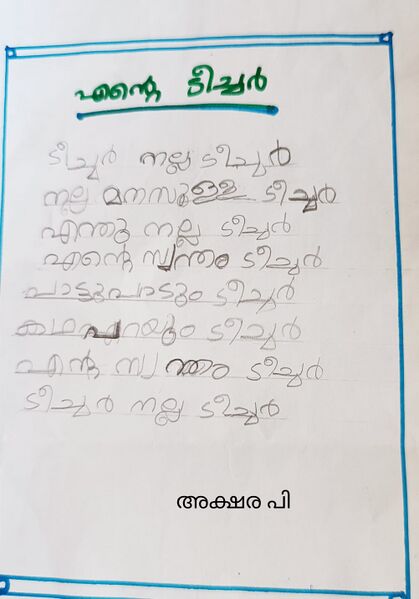 എന്റെ ടീച്ചർ
ടീച്ചർ നല്ല ടീച്ചർ
നല്ല മനസുള്ള ടീച്ചർ
എന്തു നല്ല ടീച്ചർ
എന്റെ സ്വന്തം ടീച്ചർ
പാട്ടുപാടും ടീച്ചർ
കഥപറയും ടീച്ചർ
എന്റെ സ്വന്തം ടീച്ചർ
ടീച്ചർ നല്ല ടീച്ചർ
അക്ഷര പി